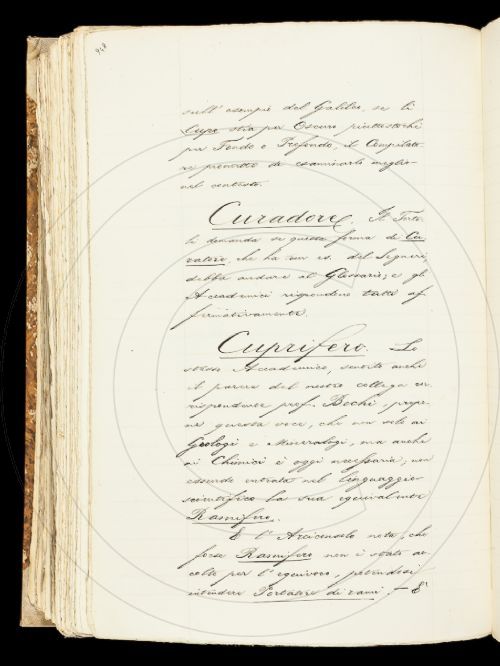 948
sull' esempio del Galileo, se li
Cupo stia per Oscuro piuttostochè
per Fondo e Profondo, il Compilato-
re promette di esaminarlo meglio
nel contesto.
Curadore. Il Torto-
li domanda se questa forma di Cu-
ratore, che ha un es. del Segneri,
debba andare al Glossario; e gli
Accademici rispondono tutti af-
fermativamente.
Cuprifero. Lo
stesso Accademico, sentito anche
il parere del nostro collega cor-
rispondente prof. Bechi, propo-
ne questa voce, che non solo ai
Geologi e Mineralogi, ma anche
ai Chimici è oggi necessaria, non
essendo entrata nel linguaggio
scientifico la sua equivalente
Ramifero.
E l' Arciconsolo nota, che
forse Ramifero non è stato ac-
colto per l' equivoco, potendosi
intendere Portatore di rami. — E'